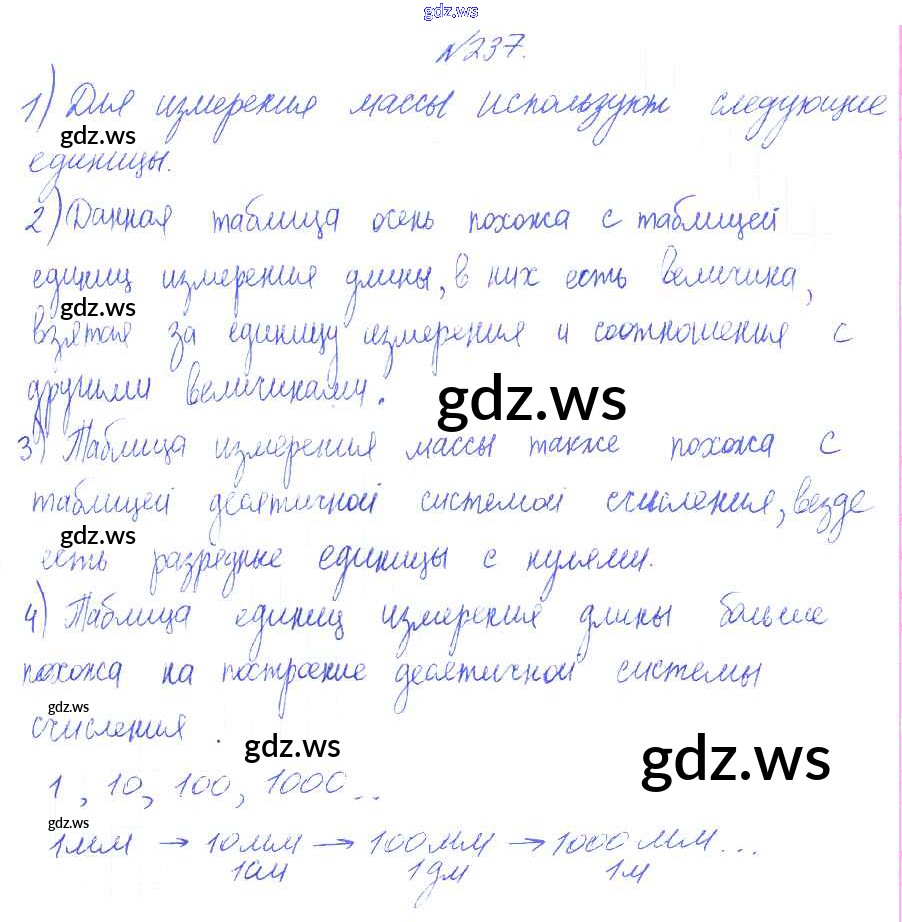 gdz.ws
№237.
1) Для измерения массы используют следующие
gdz.ws
единицы.
2) Данная таблица осень похожа с таблицей
единиц измерения длины, в них есть величина,
gdz.ws
взятая за единицу измерения и соотношения с
другими величинами.
gdz.ws
3) Таблица измерения массы также похожа с
таблицей десятичной системой счисления, везде
gdz.ws
есть разрядные единицы с нулями.
4) Таблица единиц измерения длины больше
похожа на построение десятичной системы
gdz.ws
счисления.
gdz.ws
gdz.ws
1, 10, 100, 1000...
gdz.ws
1мм → 10мм → 100мм → 1000мм...
1см 1дм 1м